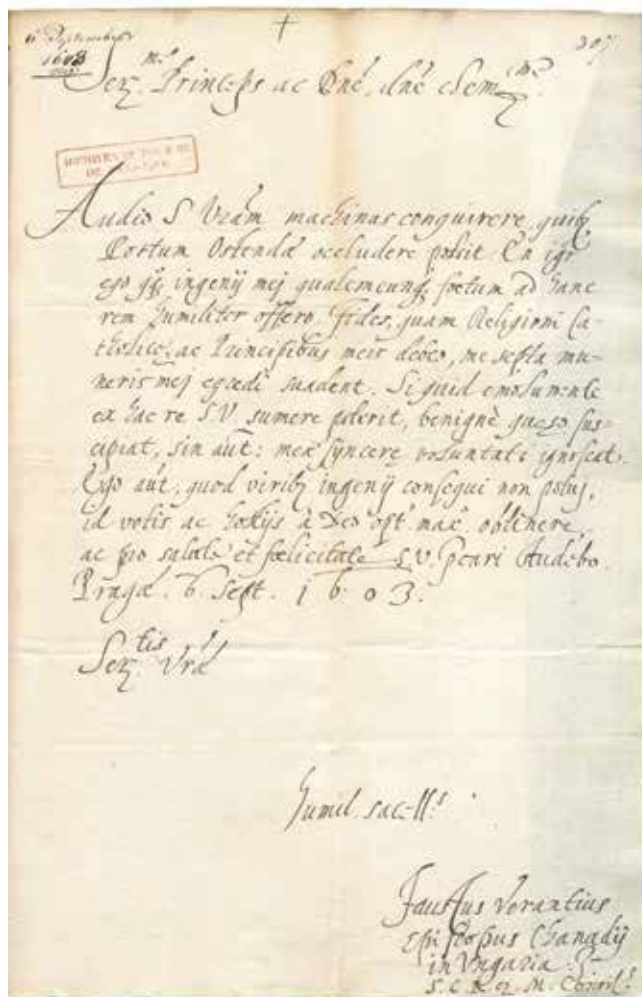 6 Septembre
1603
307
+
Ser.me Princeps ac Dne, dne clem.me
Audio S Vram machinas conquirere, quibꝫ
Portum Ostendæ occludere possit. En igr
ego ingenij mej qualemcunqꝫ foetum ad hanc
rem humiliter offero. Fides, quam Religioni Ca-
tholicę, ac Principibus meis debeo, me septa mu-
neris mej egredi suadent. Siquid emolumenti
ex hac re S V sumere poterit, benignè quęso sus-
cipiat, sin aut: meæ syncerę voluntati ignoscat.
Ego aut, quod viribꝫ ingenij consequi non potuj,
id votis ac à Deo opt. max. obtinere
ac pro salute et foelicitate S.V. pcari studebo.
Pragæ. 6. Sept. 1 6 0 3.
Ser.tis Vræ
humil. sac-lls
Faustus Verantius
Episcopus Chanadij
in Vngaria
S. C. R. M. Consil.s